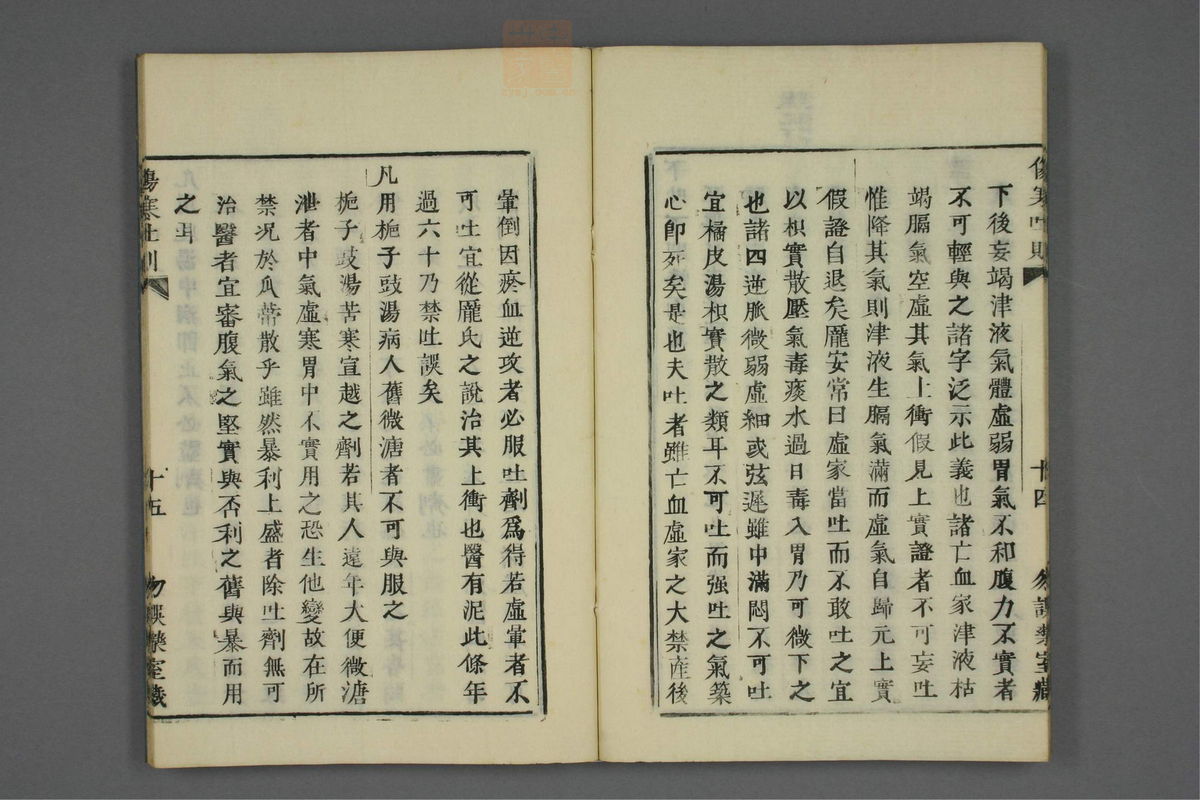 傷寒吐則
十四
勿誤藥室藏
下後妄竭津液氣體虛弱胃氣不和腹力不實者
不可輕與之諸字泛示此義也諸亡血家津液枯
竭膈氣空虛其氣上衝假見上實證者不可妄吐
惟降其氣則津液生膈氣滿而虛氣自歸元上實
假證自退矣龐安常曰虛家當吐而不敢吐之宜
以枳實散壓氣毒痰水過日毒入胃乃可微下之
也諸四逆脈微弱虛細或弦遲雖中滿悶不可吐
宜橘皮湯枳實散之類耳不可吐而强吐之氣築
心即死矣是也夫吐者雖亡血虛家之大禁產後
暈倒因瘀血逆攻者必服吐劑爲得若虛暈者不
可吐宜從龐氏之說治其上衝也醫有泥此條年
過六十乃禁吐誤矣
凡用梔子豉湯病人舊微溏者不可與服之
梔子豉湯苦寒宣越之劑若其人遠年大便微溏
泄者中氣虛寒胃中不實用之恐生他變故在所
禁況於瓜蒂散乎雖然暴利上盛者除吐劑無可
治醫者宜審腹氣之堅實與否利之舊與暴而用
之耳
傷寒吐則
十五
勿誤藥室藏